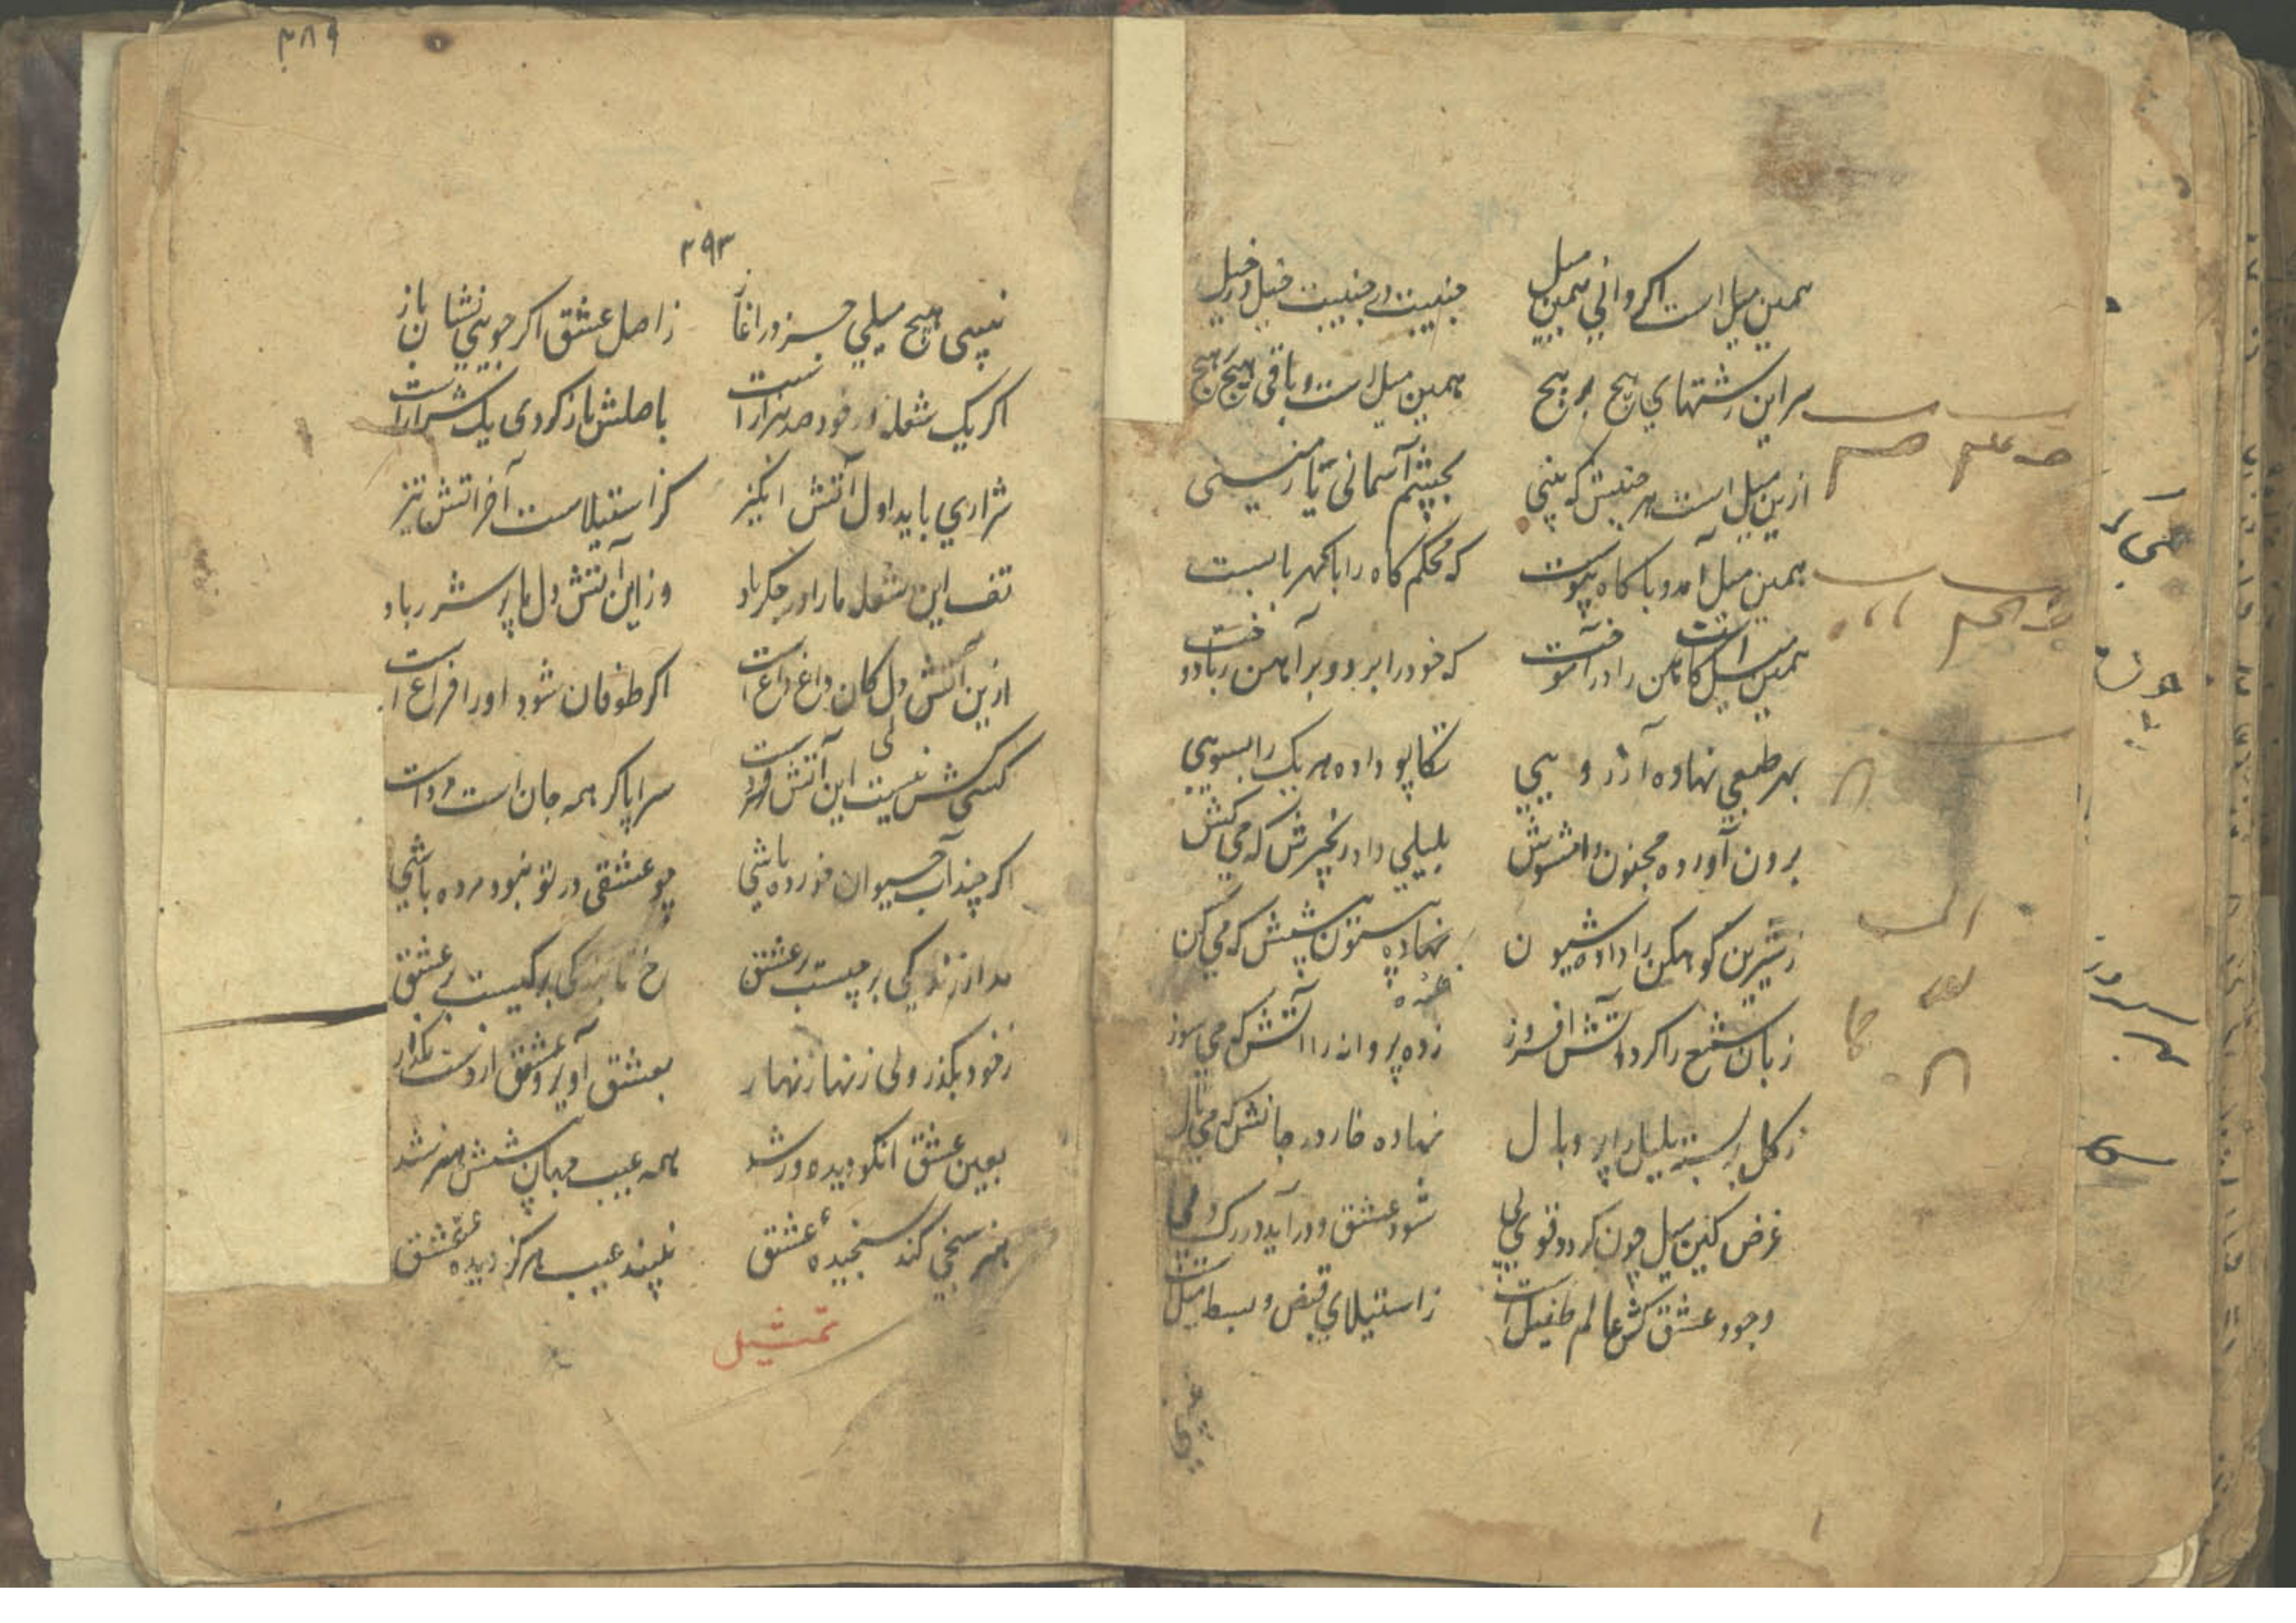 همین میل است اکر دانی همین میل جنیبت در جنیبت خیل در خیل
سر این رشتهای پیچ بر پیچ همین میل است و باقی هیچ بر هیچ
ازین میل است هر جنبش که بینی بجسم آسمانی تا زمینی
همین میل آمد و با کاه پیوست که محکم کاه را با کهربا بست
همین میل است کاهن را در آموخت که خود را برد و بر آهن ربا دوخت
بهر طبعی نهاده آرزویی تکاپو داده هر یک را بسویی
برون آورده مجنون را مشوش بلیلی داد زنجیرش که می کش
ز شیرین کوهکن را داده شیون نهاده بیستون پیشش که می کن
زبان شمع را کرد آتش افروز زده پروانه را آتش که می سوز
ز کل بر بسته بلبل را پر و بال نهاده خار در جانش که می نال
غرض کین میل چون کردد قوی پی شود عشق و در آید در رک و پی
وجود عشق کش عالم طفیل است ز استیلای قبض و بسط میل است
۳۸۹
۲۹۳
نبینی هیچ میلی جز در آغاز ز اصل عشق اکر جویی نشان باز
اکر یک شعله در خود صد هزار است باصلش باز کردی یک شرار است
شراری باید اول آتش انکیز کز استیلاست آخر اتش تیز
تف این شعله ما را در جکر باد وز این آتش دل ما پر شرر باد
ازین آتش دل کان داغ داغ است اکر طوفان شود او را فراغ است
کسی کش نیست این آتش فسرده است سراپا کر همه جان است مرده است
اکر چند آب حیوان خورده باشی چو عشقی در تو نبود مرده باشی
مدار زندکی بر چیست بر عشق رخ تابندکی بر کیست بر عشق
ز خود بکذر ولی زنهار زنهار بعشق آویز و عشق از دست مکذار
بعین عشق انکو دیده ور شد همه عیب جهان پیشش هنر شد
هنر سنجی کند سنجیده عشق نبیند عیب هرکز دیده عشق
تمثیل